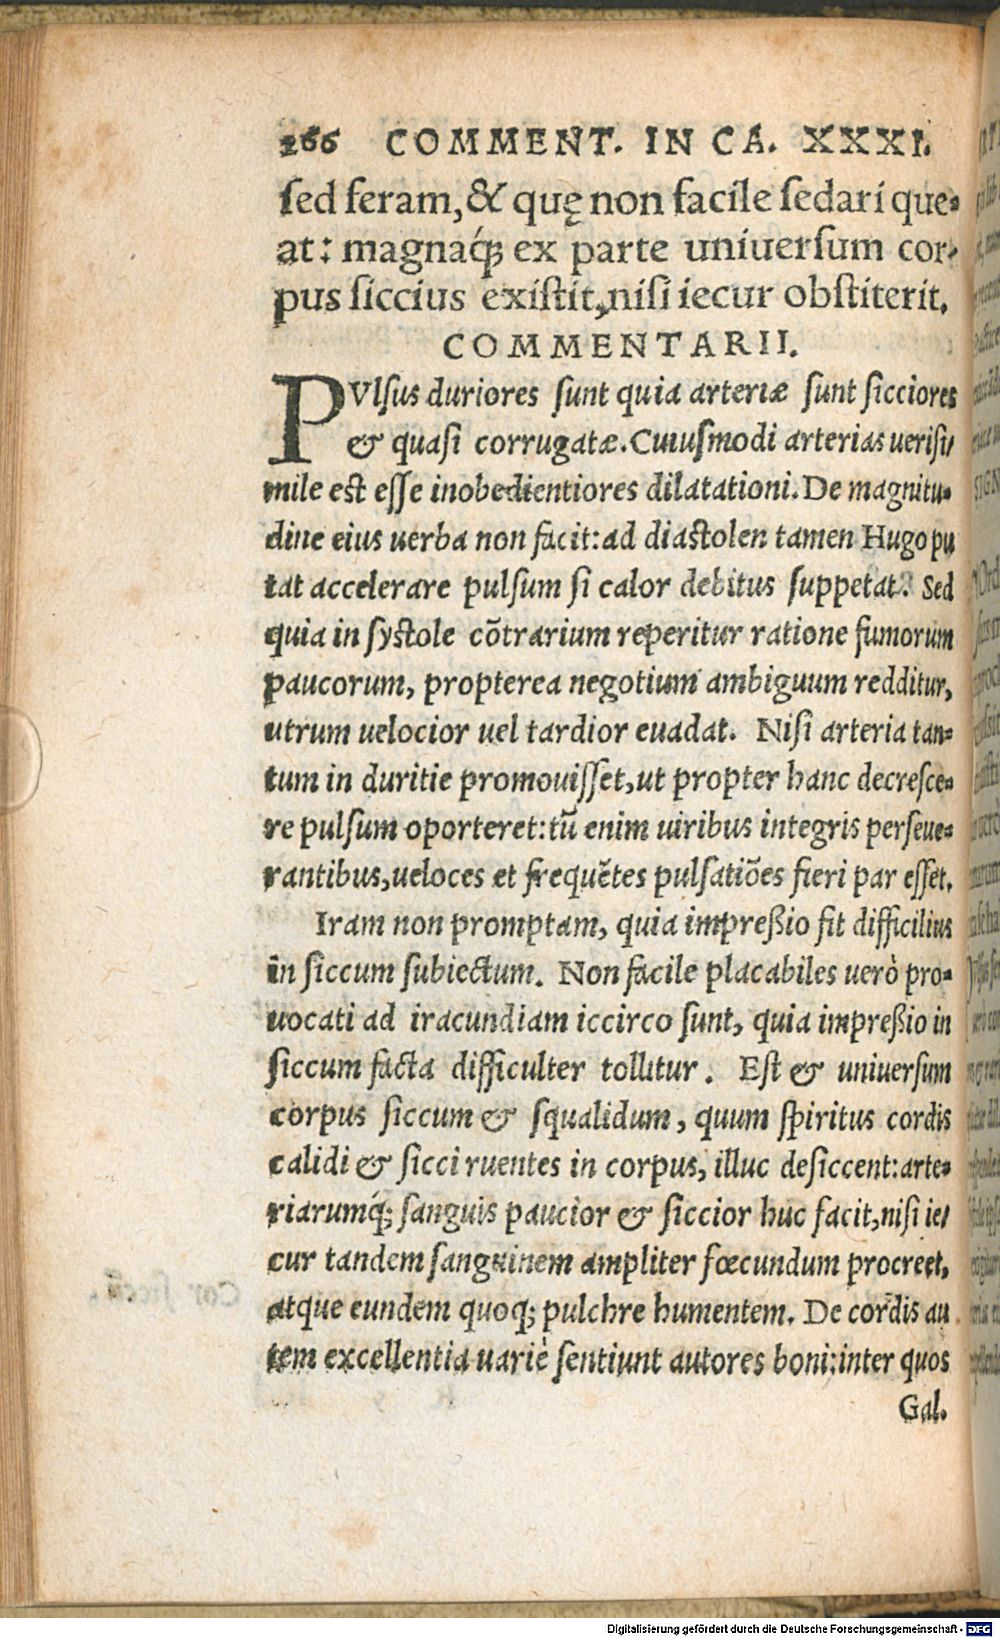 266 COMMENT. IN CA. XXXI.
ſed feram, & quę non facile ſedari que-
at: magnaq́; ex parte uniuerſum cor-
pus ſiccius exiſtit, niſi iecur obſtiterit.
COMMENTARII.
PVlſus duriores ſunt quia arteriæ ſunt ſicciores
& quaſi corrugatæ. Cuiuſmodi arterias ueriſi/
mile eſt eſſe inobedientiores dilatationi. De magnitu-
dine eius uerba non facit: ad diaſtolen tamen Hugo pu
tat accelerare pulſum ſi calor debitus ſuppetat. Sed
quia in ſyſtole cõtrarium reperitur ratione fumorum
paucorum, propterea negotium ambiguum redditur,
utrum uelocior uel tardior euadat. Niſi arteria tan-
tum in duritie promouiſſet, ut propter hanc decreſce-
re pulſum oporteret: tũ enim uiribus integris perſeue-
rantibus, ueloces et frequẽtes pulſatiões fieri par eſſet.
Iram non promptam, quia impreßio fit difficilius
in ſiccum ſubiectum. Non facile placabiles uerò pro-
uocati ad iracundiam iccirco ſunt, quia impreßio in
ſiccum facta difficulter tollitur. Eſt & uniuerſum
corpus ſiccum & ſqualidum, quum ſpiritus cordis
calidi & ſicci ruentes in corpus, illuc deſiccent: arte-
riarumq́; ſanguis paucior & ſiccior huc facit, niſi ie/
cur tandem ſanguinem ampliter fœcundum procreet,
atque eundem quoq; pulchre humentem. De cordis au
tem excellentia uariè ſentiunt autores boni: inter quos
Gal.
Digitalisierung gefördert durch die Deutsche Forschungsgemeinschaft - DFG